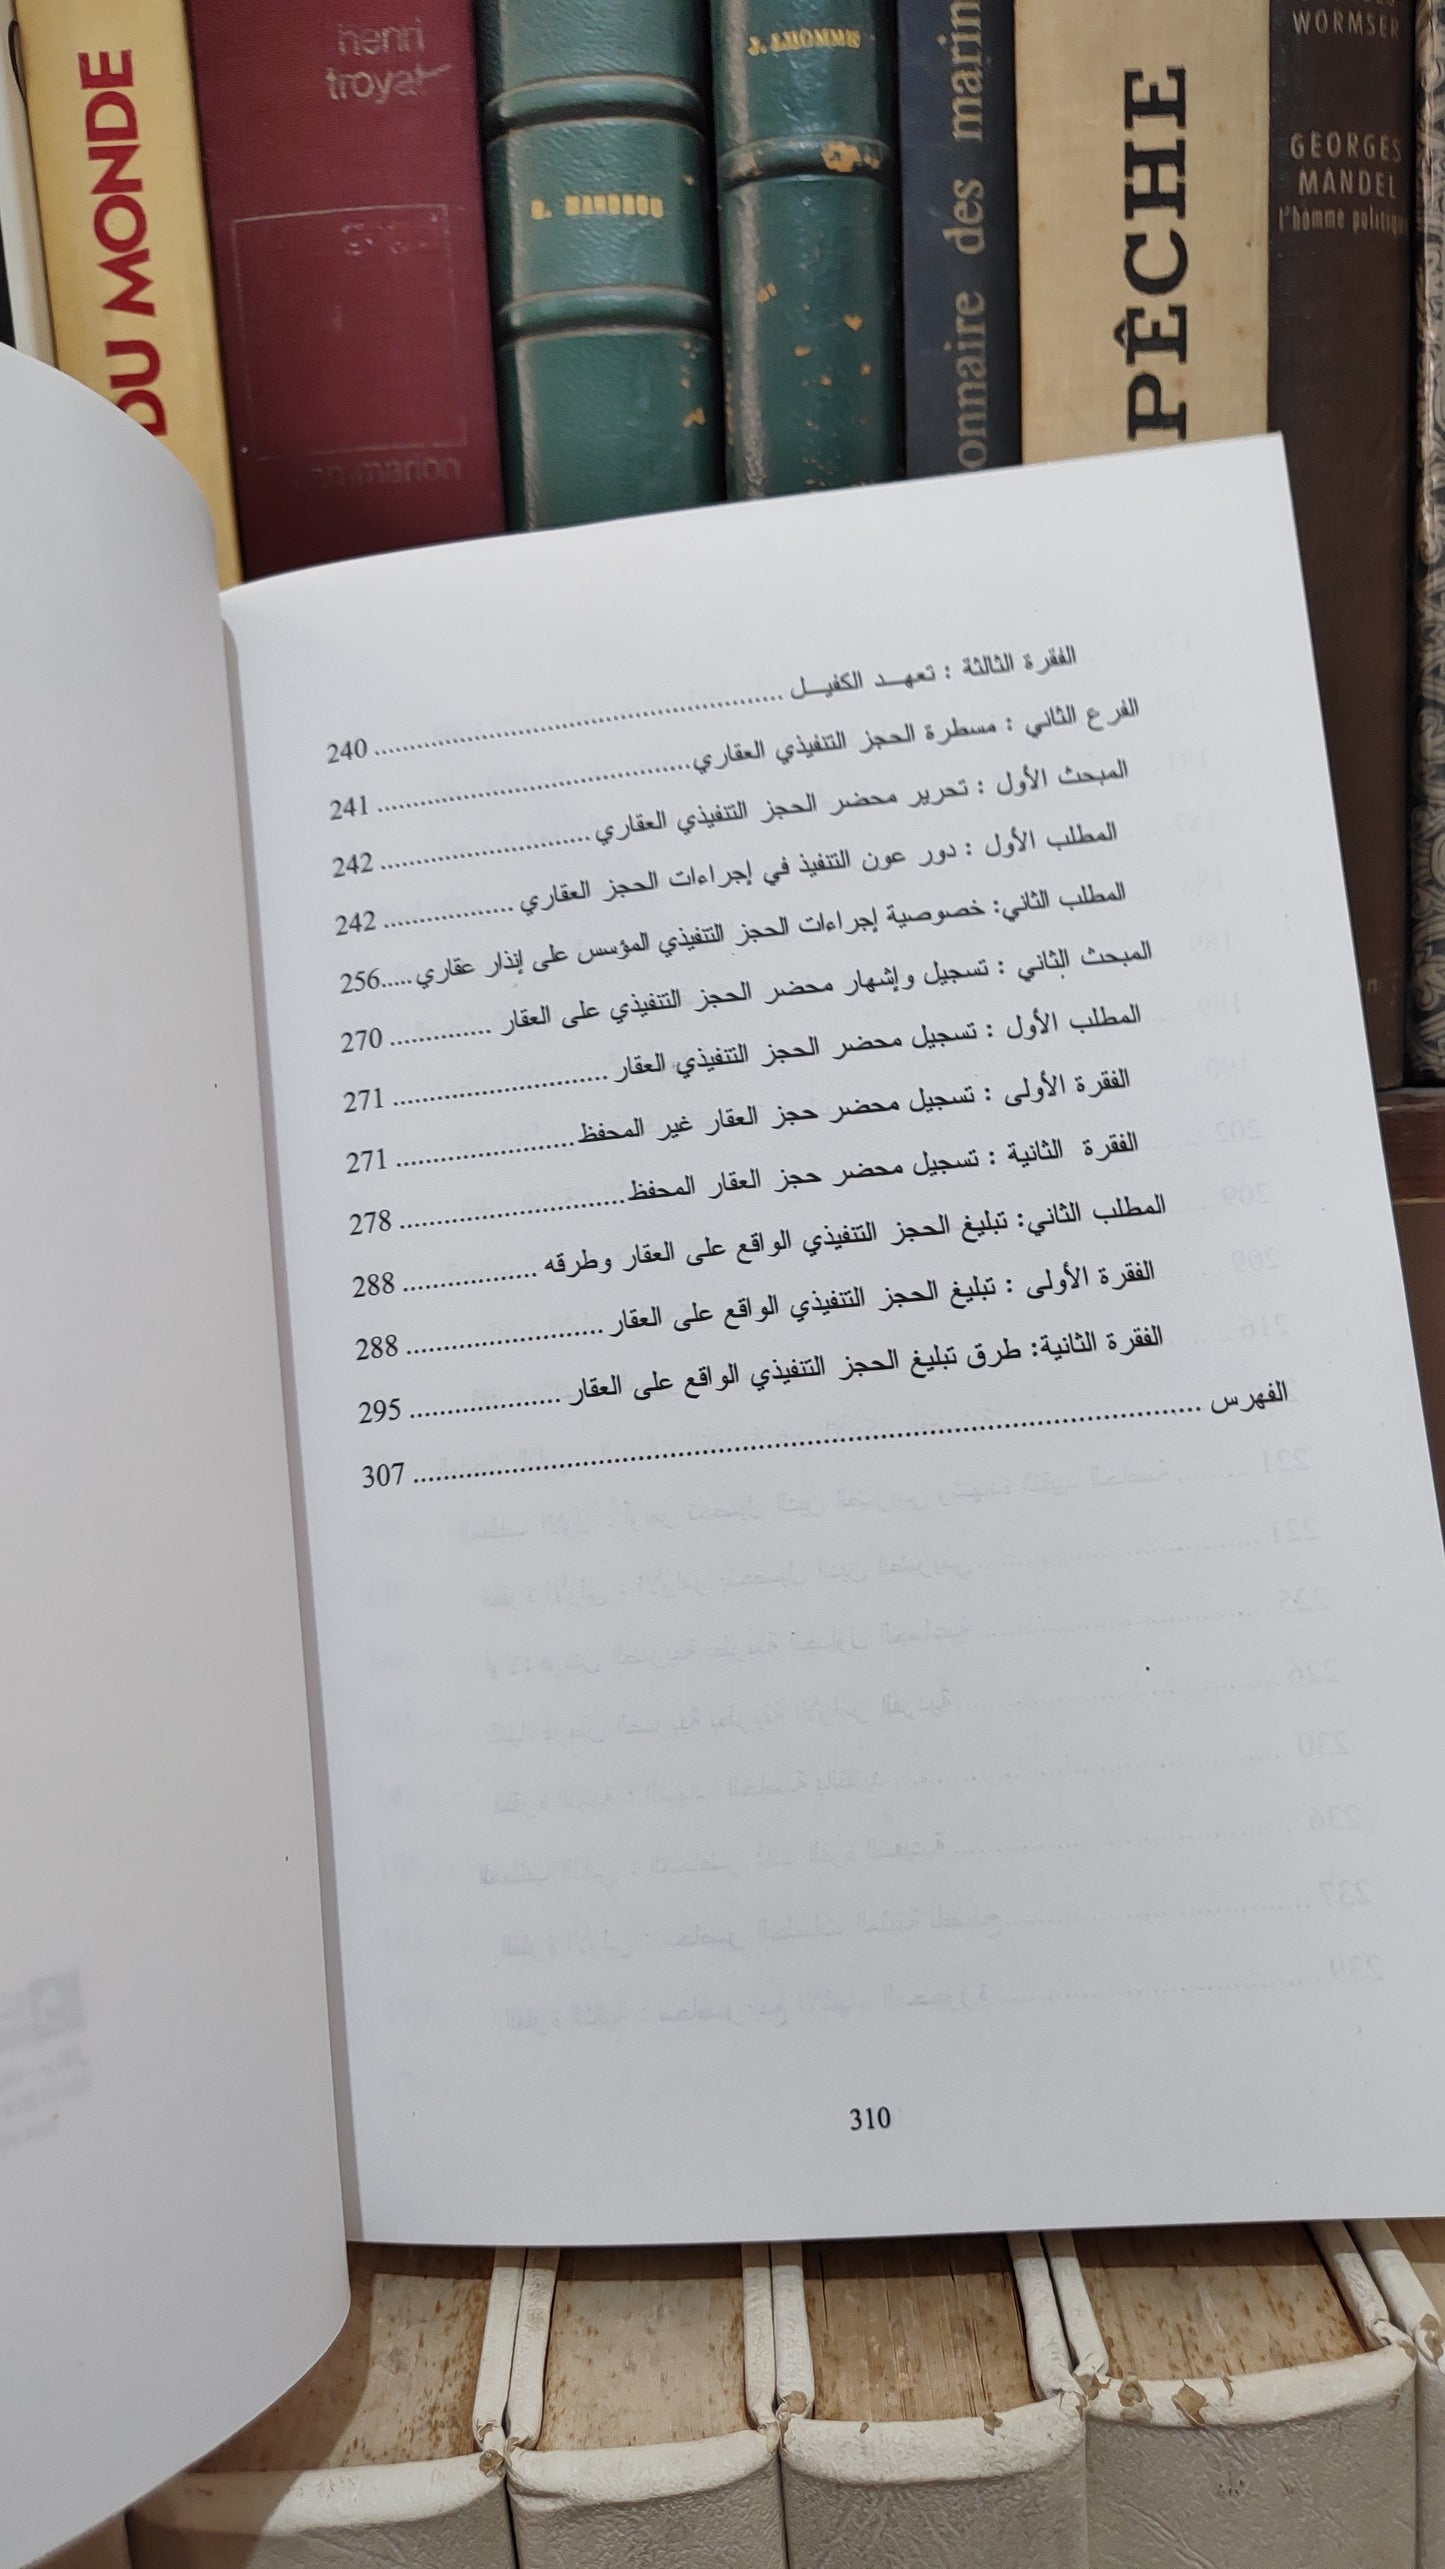 DU MONDE
henri
troyat
J. LHOMME
onnaire des marin
PÊCHE
WORMSER
GEORGES
MANDEL
l'homme politique
الفقرة الثالثة : تعهـد الكفيـل ........ 240
الفرع الثاني : مسطرة الحجز التنفيذي العقاري........ 241
المبحث الأول : تحرير محضر الحجز التنفيذي العقاري........ 242
المطلب الأول : دور عون التنفيذ في إجراءات الحجز العقاري ........ 242
المطلب الثاني: خصوصية إجراءات الحجز التنفيذي المؤسس على إنذار عقاري.....256
المبحث الثاني : تسجيل وإشهار محضر الحجز التنفيذي على العقار ........ 270
المطلب الأول : تسجيل محضر الحجز التنفيذي العقار........ 271
الفقرة الأولى : تسجيل محضر حجز العقار غير المحفظ........ 271
الفقرة الثانية : تسجيل محضر حجز العقار المحفظ........ 278
المطلب الثاني: تبليغ الحجز التنفيذي الواقع على العقار وطرقه ........ 288
الفقرة الأولى : تبليغ الحجز التنفيذي الواقع على العقار ........ 288
الفقرة الثانية: طرق تبليغ الحجز التنفيذي الواقع على العقار ........ 295
الفهرس ........ 307
310